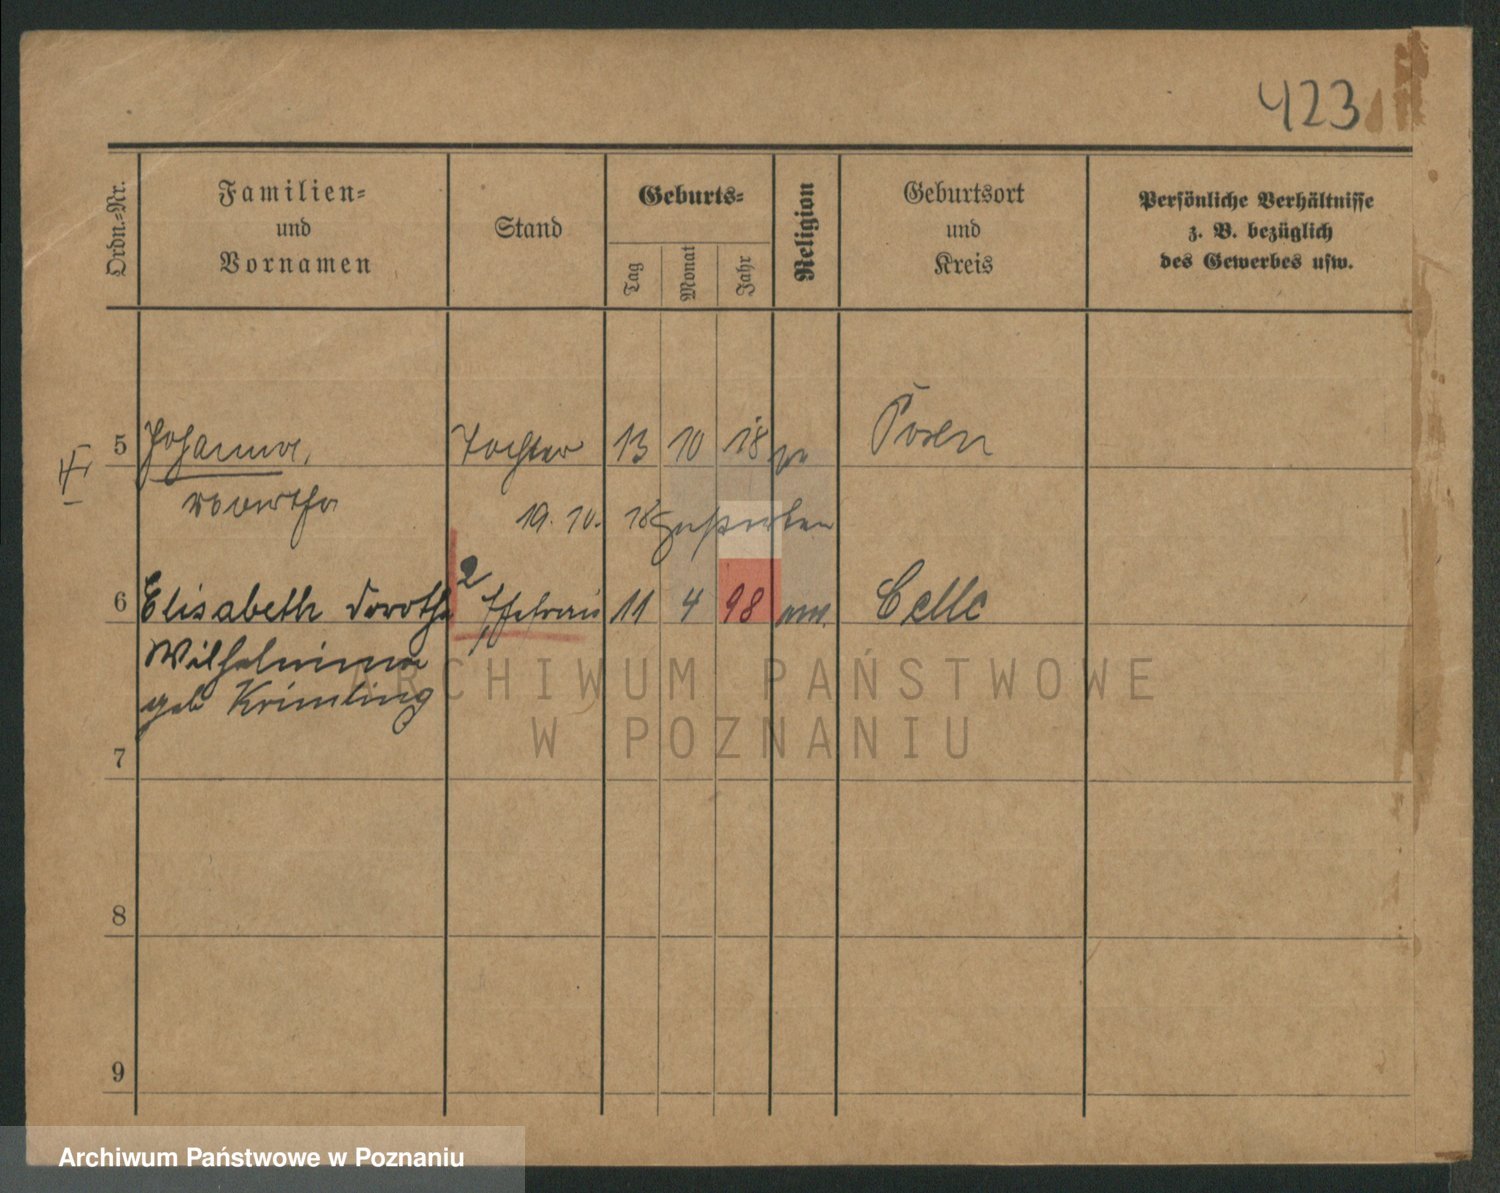 423
Ordn.-Nr.
Familien-
und
Vornamen
Stand
Geburts-
Tag
Monat
Jahr
Religion
Geburtsort
und
Kreis
Persönliche Verhältnisse
z. B. bezüglich
des Gewerbes usw.
5 Johanna, Tochter 13 10 18 Posen
19. 10. 18
6 Elisabeth Doroth 2 Ehefrau 11 4 98 Celle
Wilhelmine
geb Krimling
ARCHIWUM PAŃSTWOWE
W POZNANIU
7
8
9
Archiwum Państwowe w Poznaniu